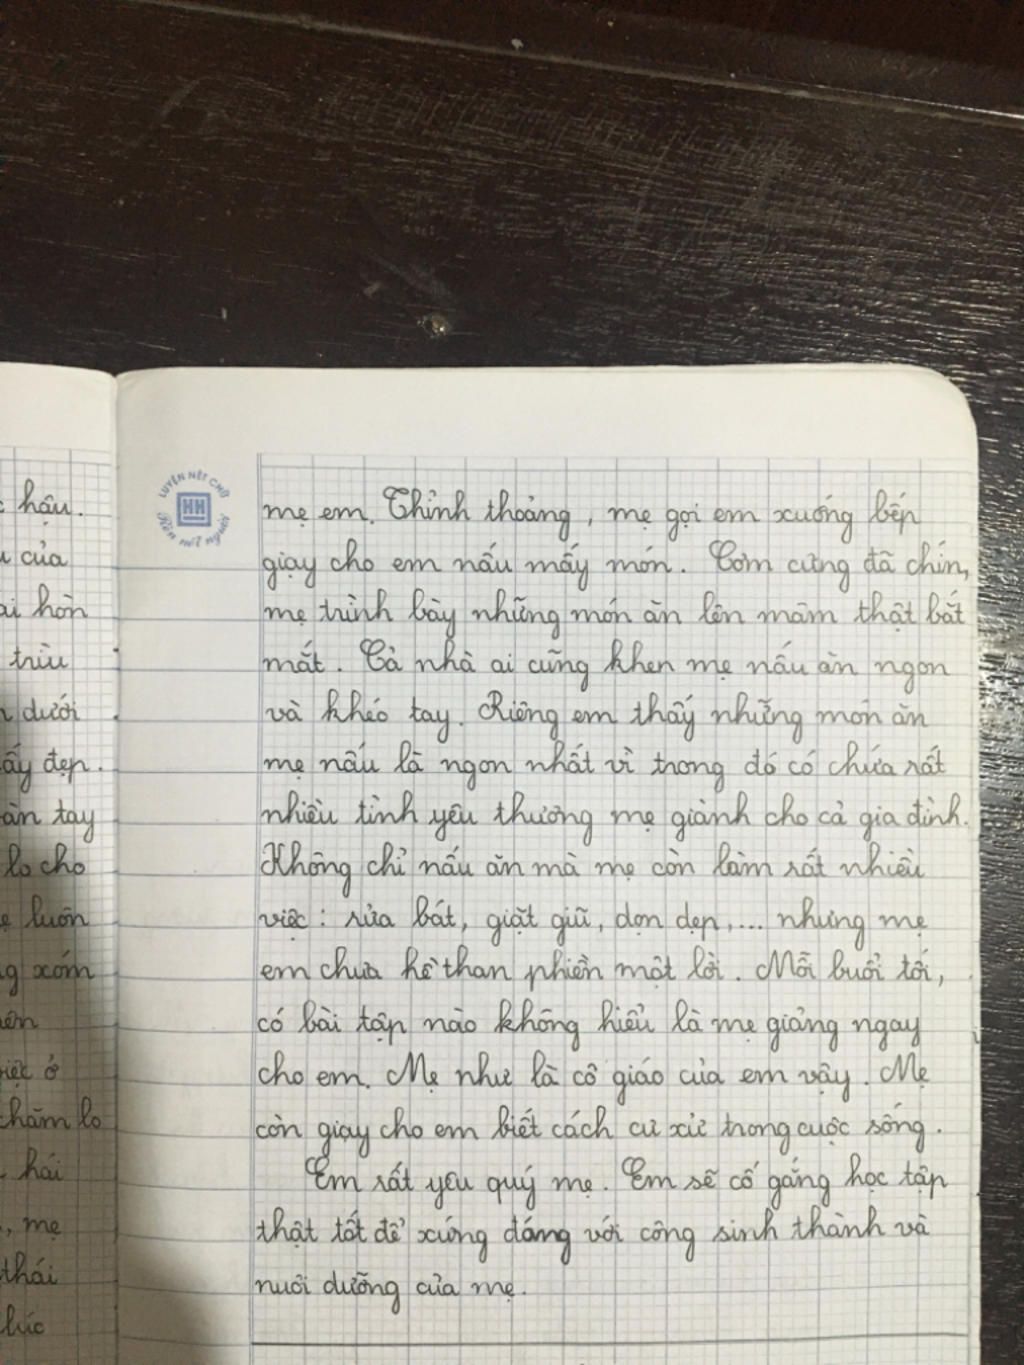 hậu.
của
hòn
trìu
dưới
ấy đẹp.
àn tay
lo cho
luôn
xóm
ở
chăm lo
hái
, mẹ
thái
lúc
LUYỆN NÉT CHỮ
HH
Rèn nết người
mẹ em. Thỉnh thoảng, mẹ gọi em xuống bếp
giạy cho em nấu mấy món. Cơm cũng đã chín,
mẹ trình bày những món ăn lên mâm thật bắt
mắt. Cả nhà ai cũng khen mẹ nấu ăn ngon
và khéo tay. Riêng em thấy những món ăn
mẹ nấu là ngon nhất vì trong đó có chứa rất
nhiều tình yêu thương mẹ giành cho cả gia đình.
Không chỉ nấu ăn mà mẹ còn làm rất nhiều
việc: rửa bát, giặt giũ, dọn dẹp,... nhưng mẹ
em chưa hề than phiền một lời. Mỗi buổi tối,
có bài tập nào không hiểu là mẹ giảng ngay
cho em. Mẹ như là cô giáo của em vậy. Mẹ
còn giạy cho em biết cách cư xử trong cuộc sống.
Em rất yêu quý mẹ. Em sẽ cố gắng học tập
thật tốt để xứng đáng với công sinh thành và
nuôi dưỡng của mẹ.